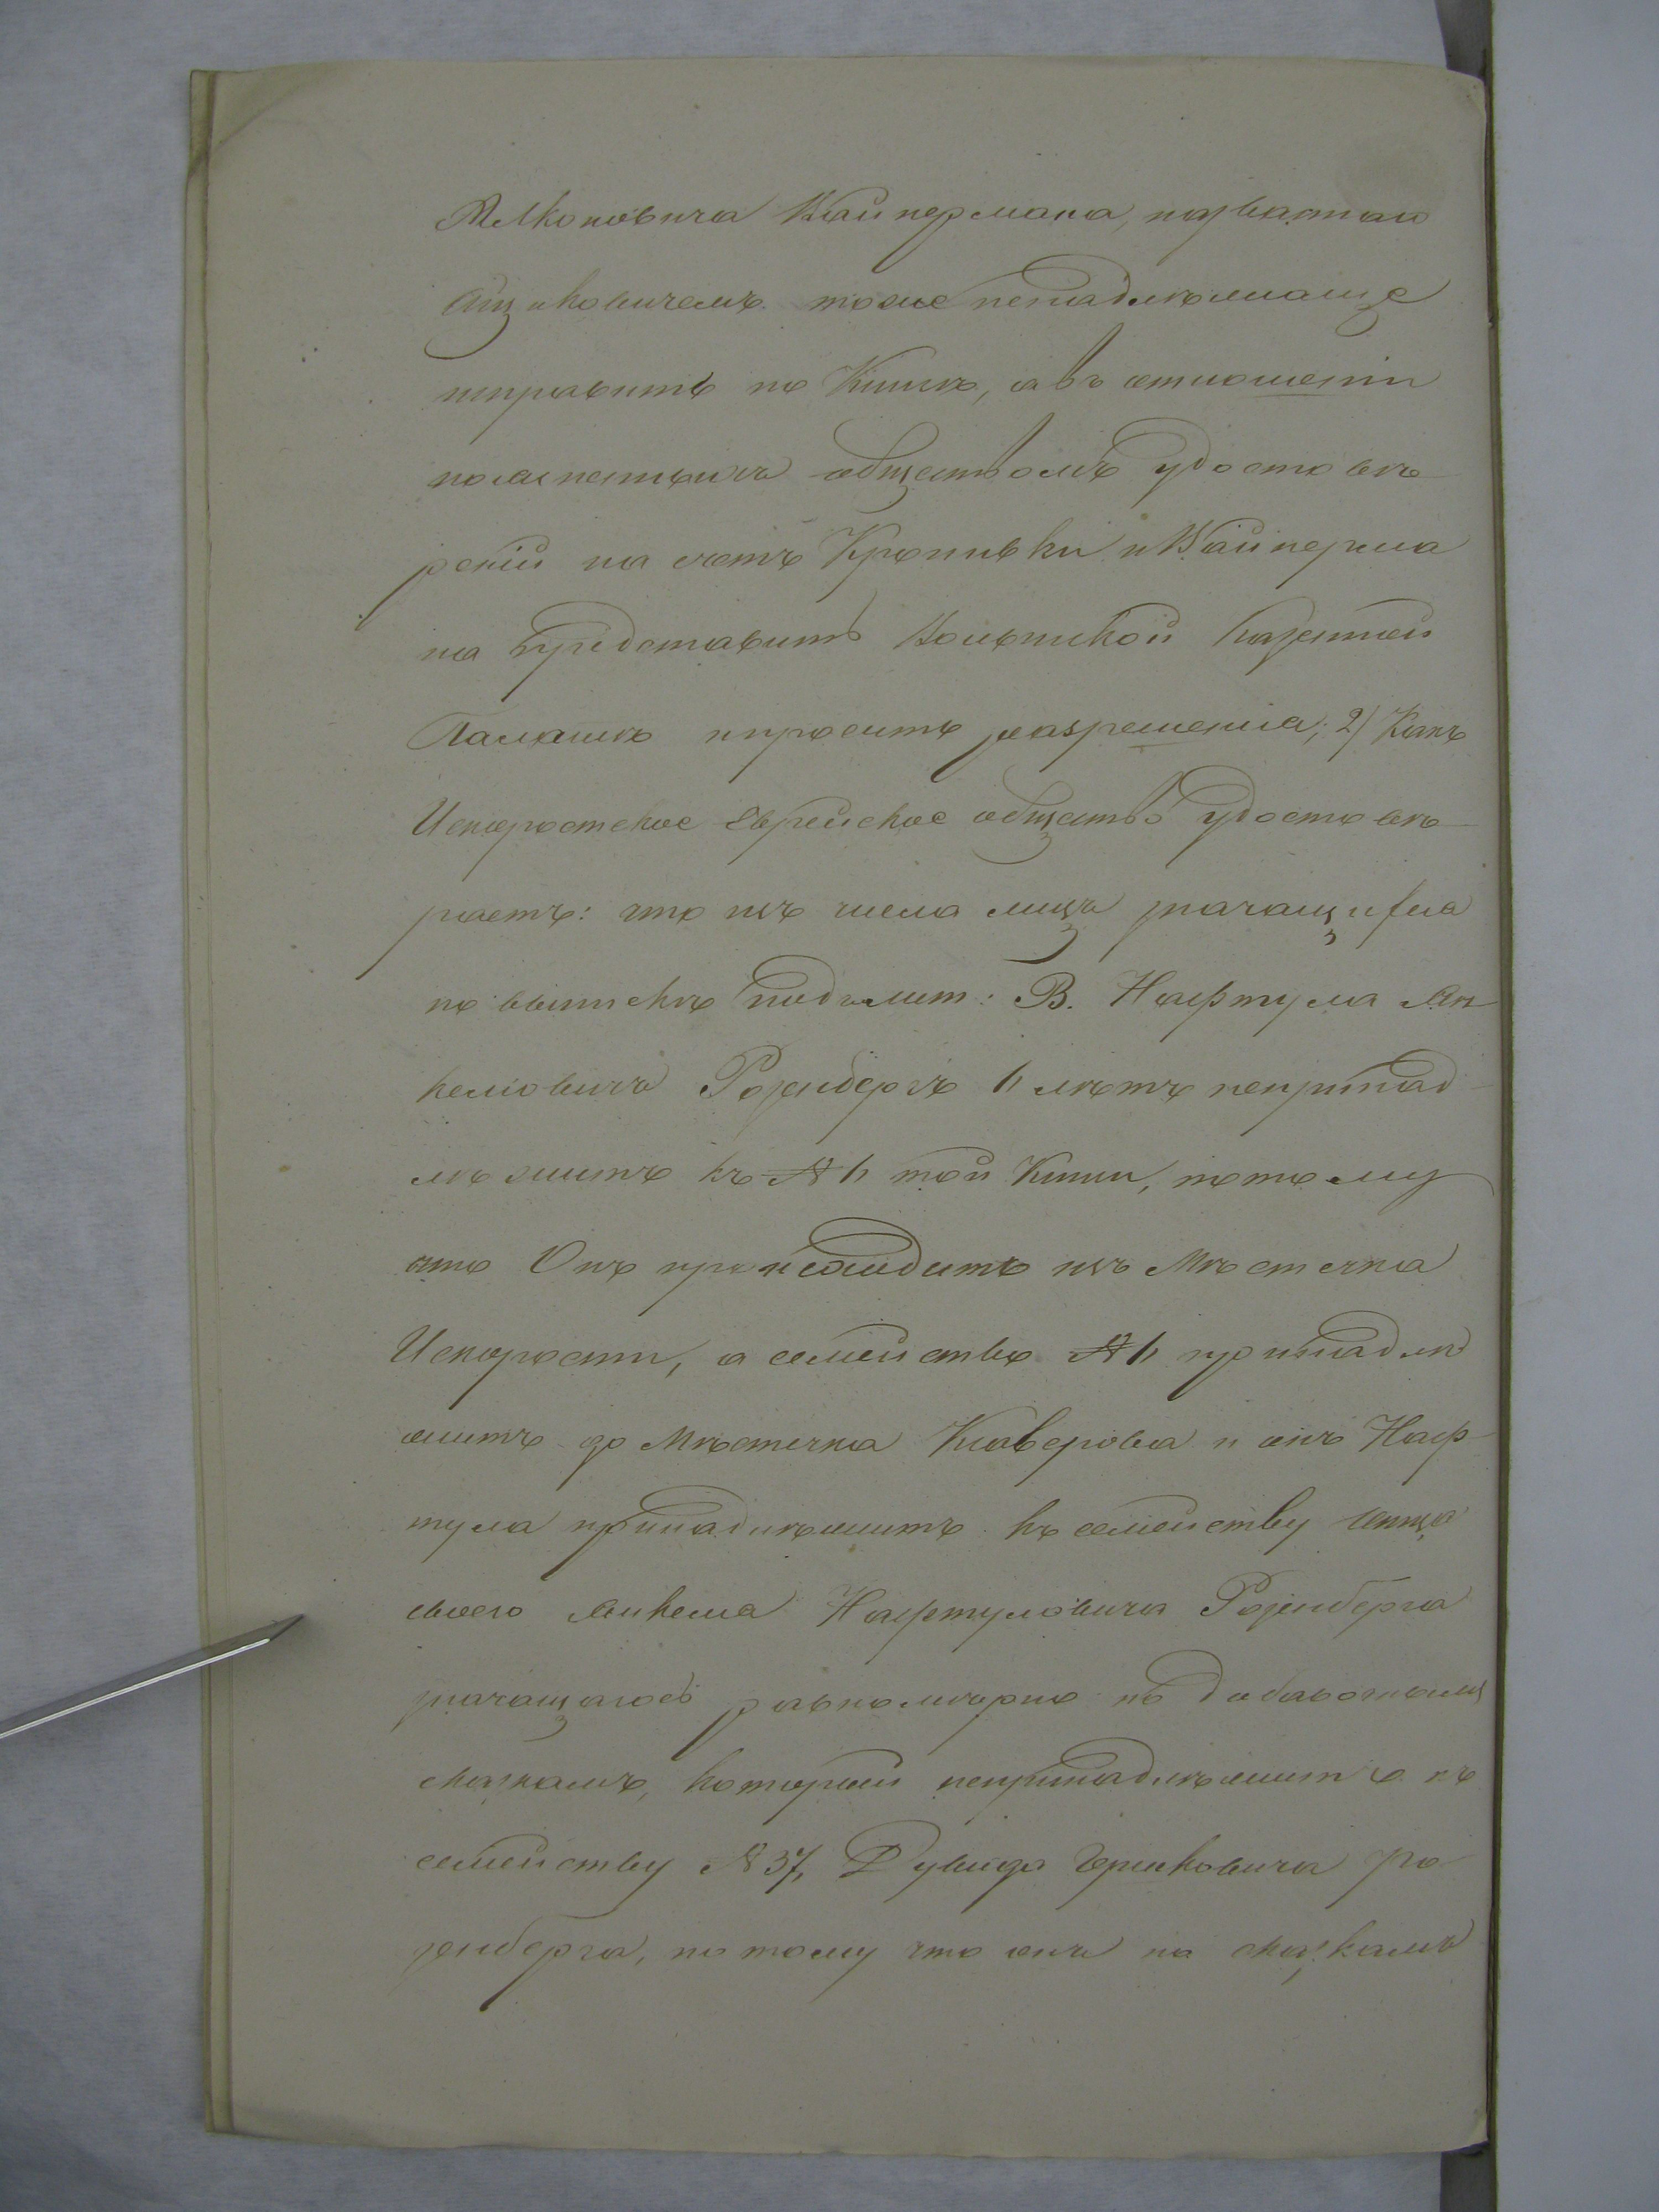 Айзиковичемъ тоже ненадлежаще
исправить по Книге, а въ отношеніи
поясненныхъ обществомъ удостовѣ
реній на счетъ Кропивки и Вайнерма
на представить Волынской Казенной
Палатѣ и просить разрешенія; 2) Какъ
Искоростское Еврейское общество удостовѣ
ряетъ: что изъ числа лицъ значащихся
по выпискѣ подъ лит: В. Нафтула Ян
келіовичъ Розенбергъ 11 лѣтъ непринад
лѣжитъ къ № 11 той Книги, потому
что Онъ происходитъ изъ Мѣстечка
Искорости, а семейство № 11 принадлѣ
житъ до Мѣстечка Ксаверова и онъ Наф
тула принадлѣжитъ къ семейству отца
своего Янкеля Нафтуловича Розенберга
значащагось равномѣрно по добавочнымъ
сказкамъ, который непринадлѣжитъ къ
семейству № 37, Дувида Гершковича Ро
зенберга, потому что онъ по сказкамъ